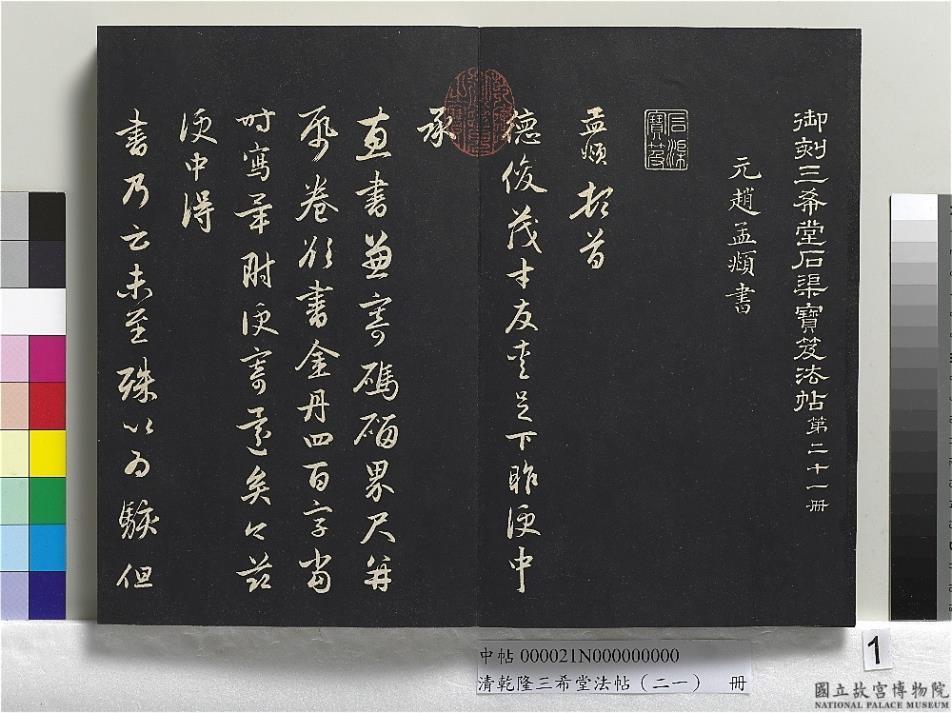 御刻三希堂石渠寶笈法帖第二十一冊
元趙孟頫書
石渠寶笈
孟頫頓首
德俊茂才友愛足下昨便中
承
惠書兼寄碼碯界尺并
紙卷欲書金丹四百字當
時寫畢附便寄還矣今茲
便中得
書乃云未至殊以為駭但
中帖 000021N000000000
清乾隆三希堂法帖（二一） 冊
1
國立故宮博物院
NATIONAL PALACE MUSEUM